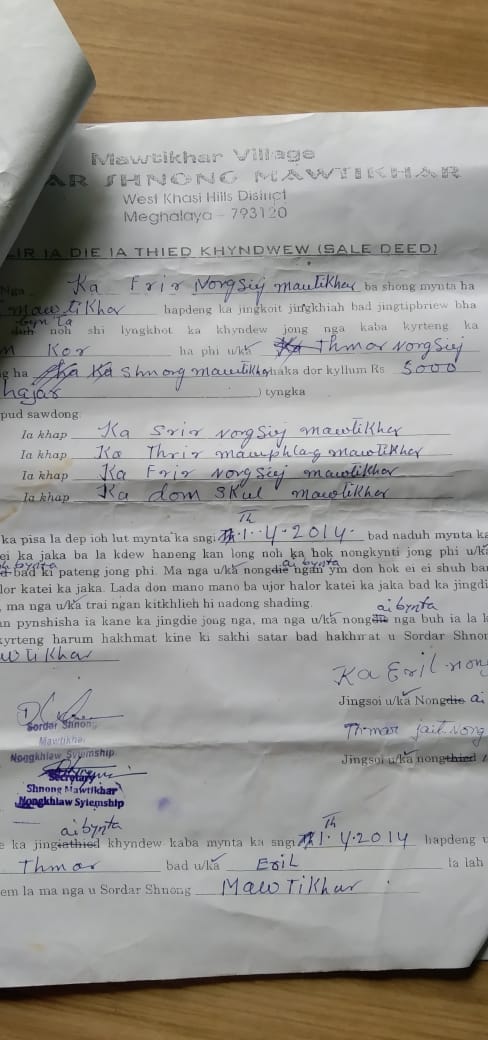 Mawtikhar Village
AR SHNONG MAWTIKHAR
West Khasi Hills District
Meghalaya - 793120
IR IA DIE IA THIED KHYNDWEW (SALE DEED)
Nga Ka Frir Nongsiej mawtikhar ba shong mynta ha
mawtikhar hapdeng ka jingkoit jingkhiah bad jingtipbriew bha
noh shi lyngkhot ka khyndew jong nga kaba kyrteng ka
Kor ha phi u/ka Thmar Nongsiej
g ha Shnong mawtikhar haka dor kyllum Rs 5000
hajar ) tyngka
pud sawdong:
Ia khap Ka Srir Nongsiej mawtikhar
Ia khap Ka Thrir mawphlang mawtikhar
Ia khap Ka Frir Nongsiej mawtikhar
Ia khap Ka dom skul mawtikhar
ka pisa la dep ioh lut mynta ka sngi 1Th.4.2014 bad naduh mynta ka
ei ka jaka ba la kdew haneng kan long noh ka hok nongkynti jong phi u/ka
bad ki pateng jong phi. Ma nga u/ka nongdie ai bynta ngan ym don hok ei ei shuh ban
halor katei ka jaka. Lada don mano mano ba ujor halor katei ka jaka bad ka jingdi
, ma nga u/ka trai ngan kitkhlieh hi nadong shading.
an pynshisha ia kane ka jingdie jong nga, ma nga u/ka nongdie ai bynta nga buh ia la k
kyrteng harum hakhmat kine ki sakhi satar bad hakhmat u Sordar Shnon
awtikhar
Ka Eril non
Jingsoi u/ka Nongdie ai
Sordar Shnong
Mawtikhar
Nongkhlaw Syiemship
Thmar jait Nong
Jingsoi u/ka nongthied
Secretary
Shnong Mawtikhar
Nongkhlaw Syiemship
ai bynta
e ka jingiathied khyndew kaba mynta ka sngi 1Th.4.2014 hapdeng u
Thmar bad u/ka Eril la lah
em la ma nga u Sordar Shnong Mawtikhar